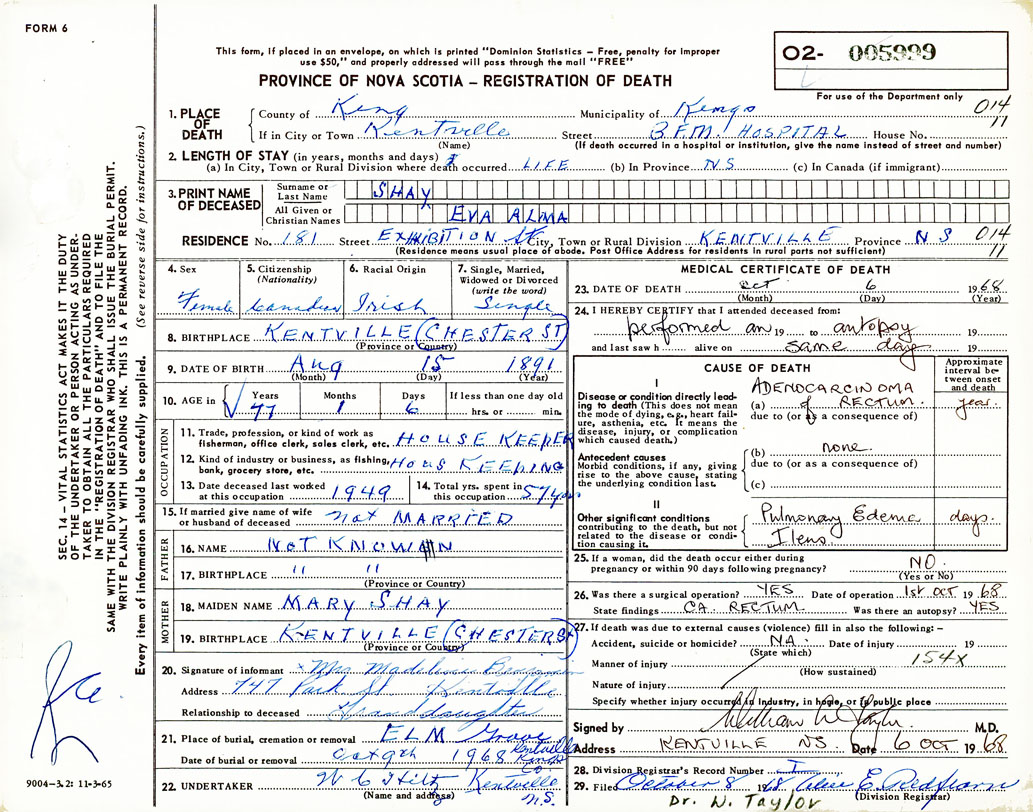 FORM 6
This form, if placed in an envelope, on which is printed "Dominion Statistics – Free, penalty for improper
use $50," and properly addressed will pass through the mail "FREE"
PROVINCE OF NOVA SCOTIA – REGISTRATION OF DEATH
O2- 005999
For use of the Department only
014
11
1. PLACE OF DEATH
County of King Municipality of Kings
If in City or Town Kentville Street B.F.M. HOSPITAL House No.
(Name) (If death occurred in a hospital or institution, give the name instead of street and number)
2. LENGTH OF STAY (in years, months and days)
(a) In City, Town or Rural Division where death occurred LIFE (b) In Province NS (c) In Canada (if immigrant)
3. PRINT NAME OF DECEASED
Surname or Last Name SHAY
All Given or Christian Names EVA ALMA
RESIDENCE No. 181 Street EXHIBITION St City, Town or Rural Division KENTVILLE Province NS 014
(Residence means usual place of abode. Post Office Address for residents in rural parts not sufficient) 11
4. Sex 5. Citizenship (Nationality) 6. Racial Origin 7. Single, Married, Widowed or Divorced (write the word)
Female Canadian Irish Single
8. BIRTHPLACE KENTVILLE (CHESTER ST)
(Province or Country)
9. DATE OF BIRTH Aug 15 1891
(Month) (Day) (Year)
10. AGE in Years Months Days If less than one day old
77 1 6 hrs. or min.
OCCUPATION
11. Trade, profession, or kind of work as
fisherman, office clerk, sales clerk, etc. HOUSE KEEPER
12. Kind of industry or business, as fishing,
bank, grocery store, etc. HOUS KEEPING
13. Date deceased last worked
at this occupation 1949
14. Total yrs. spent in
this occupation 57 yrs
15. If married give name of wife
or husband of deceased not MARRIED
FATHER
16. NAME NOT KNOWN
17. BIRTHPLACE " "
(Province or Country)
MOTHER
18. MAIDEN NAME MARY SHAY
19. BIRTHPLACE KENTVILLE (CHESTER St)
(Province or Country)
20. Signature of informant x Mrs
Address 747 Park St Kentville
Relationship to deceased Granddaughter
21. Place of burial, cremation or removal ELM Grove
Date of burial or removal Oct 9th 1968 Kentville Kings Co
22. UNDERTAKER W C Hiltz Kentville N.S.
(Name and address)
MEDICAL CERTIFICATE OF DEATH
23. DATE OF DEATH Oct 6 1968
(Month) (Day) (Year)
24. I HEREBY CERTIFY that I attended deceased from:
performed an 19 to autopsy 19
and last saw h alive on same day 19
CAUSE OF DEATH
Approximate interval between onset and death
I
Disease or condition directly leading to death (This does not mean the mode of dying, e.g., heart failure, asthenia, etc. It means the disease, injury, or complication which caused death.)
ADENOCARCINOMA
(a) of RECTUM year.
due to (or as a consequence of)
Antecedent causes
Morbid conditions, if any, giving rise to the above cause, stating the underlying condition last.
(b) none.
due to (or as a consequence of)
(c)
II
Other significant conditions contributing to the death, but not related to the disease or condition causing it.
Pulmonary Edema days.
Ileus
25. If a woman, did the death occur either during
pregnancy or within 90 days following pregnancy? NO
(Yes or No)
26. Was there a surgical operation? YES Date of operation 1st OCT 1968
State findings CA. RECTUM Was there an autopsy? YES
27. If death was due to external causes (violence) fill in also the following: –
Accident, suicide or homicide? NA Date of injury 19
(State which)
Manner of injury 154X
(How sustained)
Nature of injury
Specify whether injury occurred in industry, in home, or in public place
Signed by William D. Taylor M.D.
Address KENTVILLE NS. Date 6 OCT 1968
28. Division Registrar's Record Number
29. Filed October 8 1968 E. Redfearn
(Division Registrar)
Dr. W. TAYLOR
SEC. 14 – VITAL STATISTICS ACT MAKES IT THE DUTY
OF THE UNDERTAKER OR PERSON ACTING AS UNDER-
TAKER TO OBTAIN ALL THE PARTICULARS REQUIRED
IN THE "REGISTRATION OF DEATH" AND TO FILE THE
SAME WITH THE DIVISION REGISTRAR WHO SHALL ISSUE THE BURIAL PERMIT.
WRITE PLAINLY WITH UNFADING INK. THIS IS A PERMANENT RECORD.
Every item of information should be carefully supplied. (See reverse side for instructions.)
9004-3.2: 11-3-65